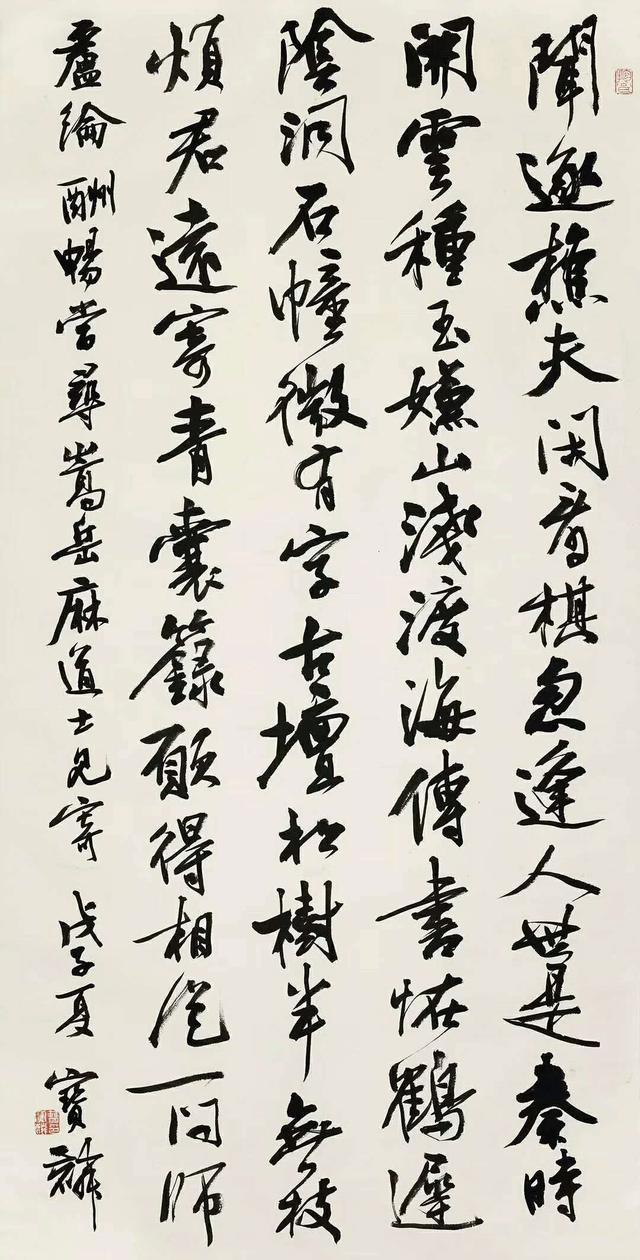 聞逐樵夫閑看棋忽逢人世是秦時
開雲種玉嫌山淺渡海傳書恠鶴遲
陰洞石幢微有字古壇松樹半無枝
煩君遠寄青囊籙願得相從一問師
盧綸酬暢當尋嵩岳麻道士見寄 戊子夏 寶